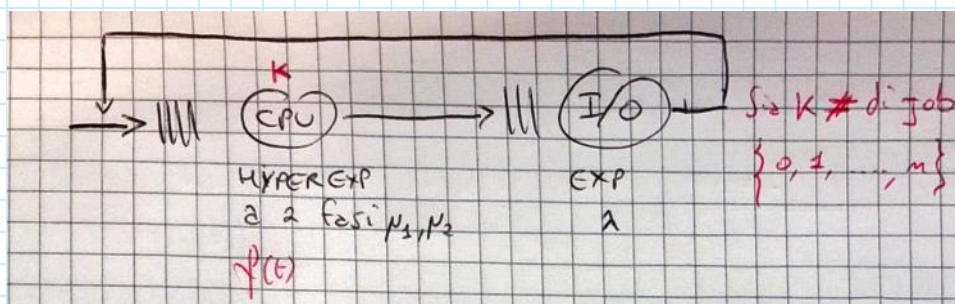 K
CPU
I/O
Sia K # di job
{0, 1, ....., n}
HYPEREXP
a 2 fasi μ1, μ2
EXP
λ
f(t)